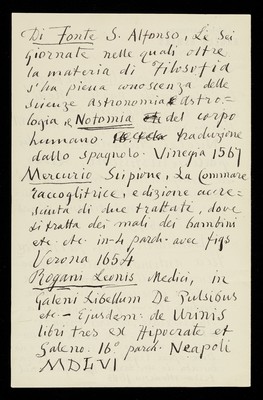 Di Fonte S. Alfonso, Le Sei
giornate nelle quali oltre
la materia di Filosofia
s'ha piena conoscenza delle
scienze astronomia & astro=
logia e Notomia del corpo
humano. traduzione
dallo spagnolo. Vinegia 1567
Mercurio Scipione, La Commare
raccoglitrice, edizione accre=
sciuta di due trattati, dove
si tratta dei mali dei bambini
etc. etc. in-4 pardt. avec figs
Verona 1654
Rogani Leonis Medici, in
Galeni Libellum De Pulsibus
etc - Ejusdem: de Urinis
libri tres ex Hipocrate et
Galeno. 16° pardt. Neapoli
MDLVI